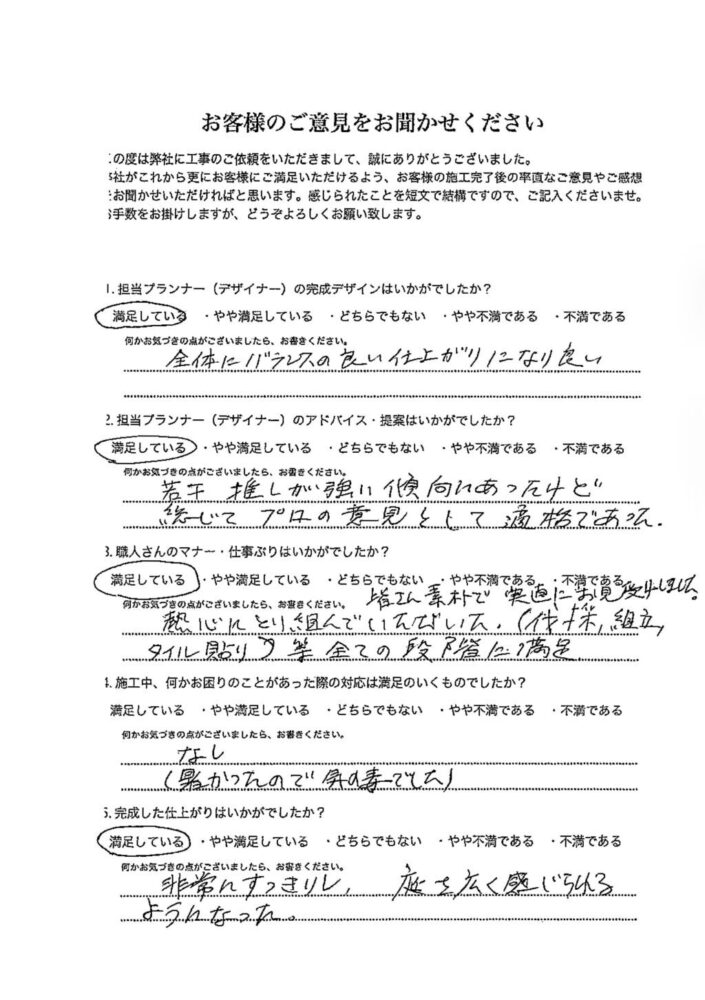 お客様のご意見をお聞かせください
の度は弊社に工事のご依頼をいただきまして、誠にありがとうございました。
社がこれから更にお客様にご満足いただけるよう、お客様の施工完了後の率直なご意見やご感想
お聞かせいただければと思います。感じられたことを短文で結構ですので、ご記入くださいませ。
手数をお掛けしますが、どうぞよろしくお願い致します。
1. 担当プランナー（デザイナー）の完成デザインはいかがでしたか？
満足している ・やや満足している ・どちらでもない ・やや不満である ・不満である
何かお気づきの点がございましたら、お書きください。
全体にバランスの良い仕上がりになり良い
2. 担当プランナー（デザイナー）のアドバイス・提案はいかがでしたか？
満足している ・やや満足している ・どちらでもない ・やや不満である ・不満である
何かお気づきの点がございましたら、お書きください。
若干 推しが強い傾向にあったけど
総じて プロの意見として 適格であった.
3. 職人さんのマナー・仕事ぶりはいかがでしたか？
満足している ・やや満足している ・どちらでもない ・やや不満である ・不満である
何かお気づきの点がございましたら、お書きください。 皆さん素朴で 実直にお見受けしました。
熱心にとり組んでいただいた. (伐採, 組立,
タイル貼り) 等 全ての段階に満足
4. 施工中、何かお困りのことがあった際の対応は満足のいくものでしたか？
満足している ・やや満足している ・どちらでもない ・やや不満である ・不満である
何かお気づきの点がございましたら、お書きください。
なし
(暑かったので 気の毒でした)
5. 完成した仕上がりはいかがでしたか？
満足している ・やや満足している ・どちらでもない ・やや不満である ・不満である
何かお気づきの点がございましたら、お書きください。
非常にすっきりし、 庭も広く感じられる
ようになった。